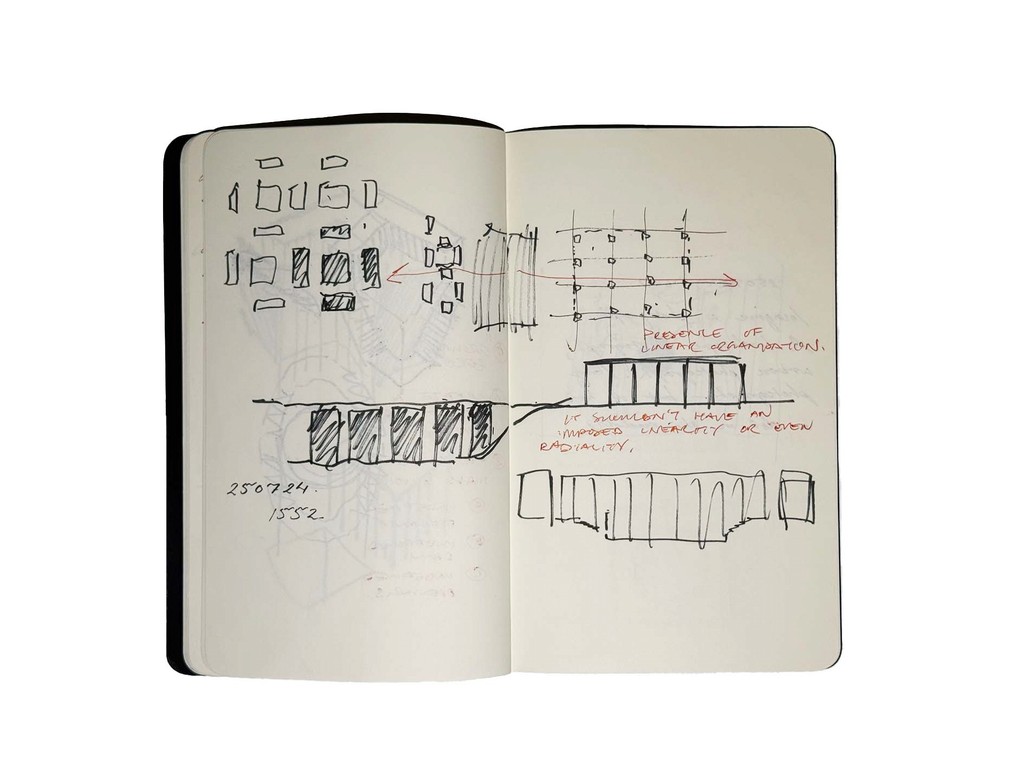 250724.
1552
PRESENCE OF
LINEAR ORGANIZATION.
IT SHOULDN'T HAVE AN
IMPOSED LINEARITY OR EVEN
RADIALITY.